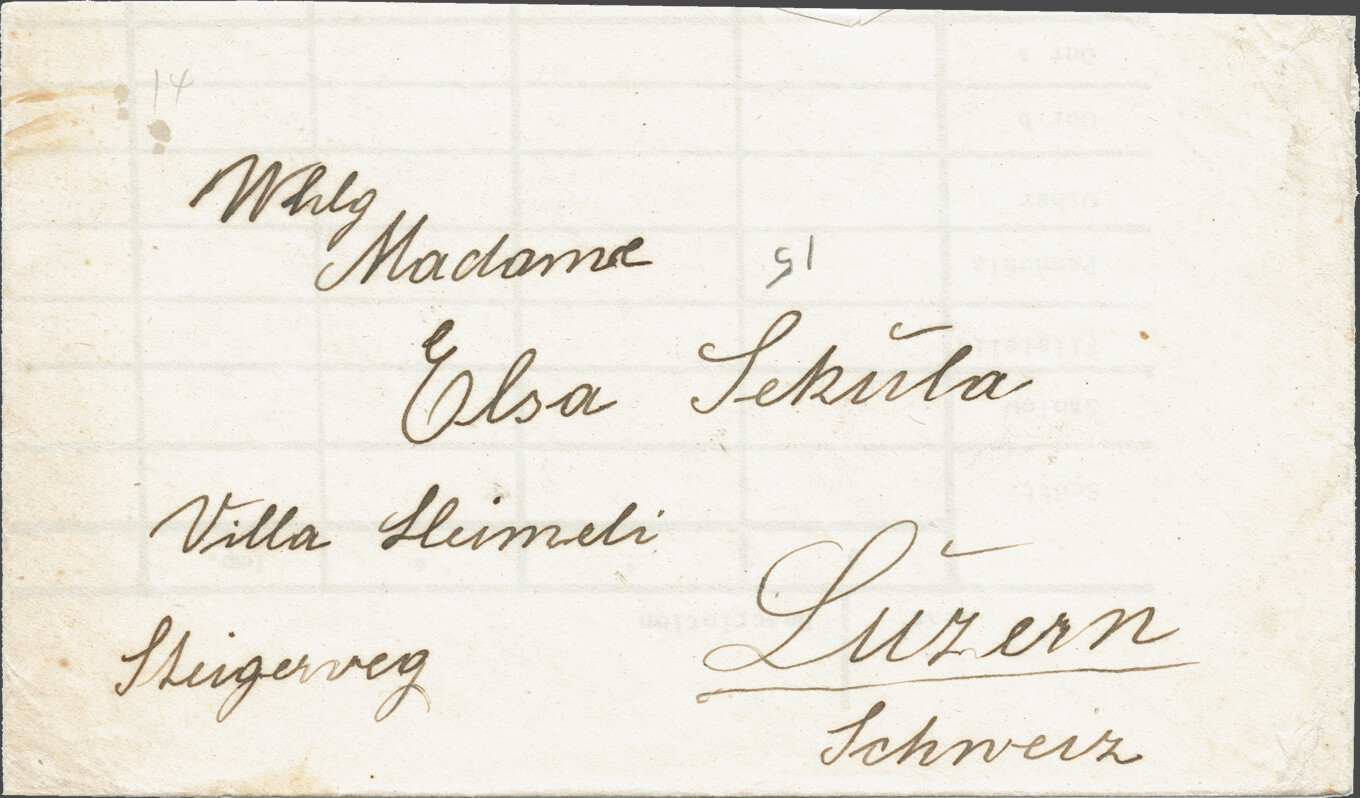 14
Whlg
Madame
15
Elsa Sekula
Villa Heimeli
Luzern
Steigerweg
Schweiz